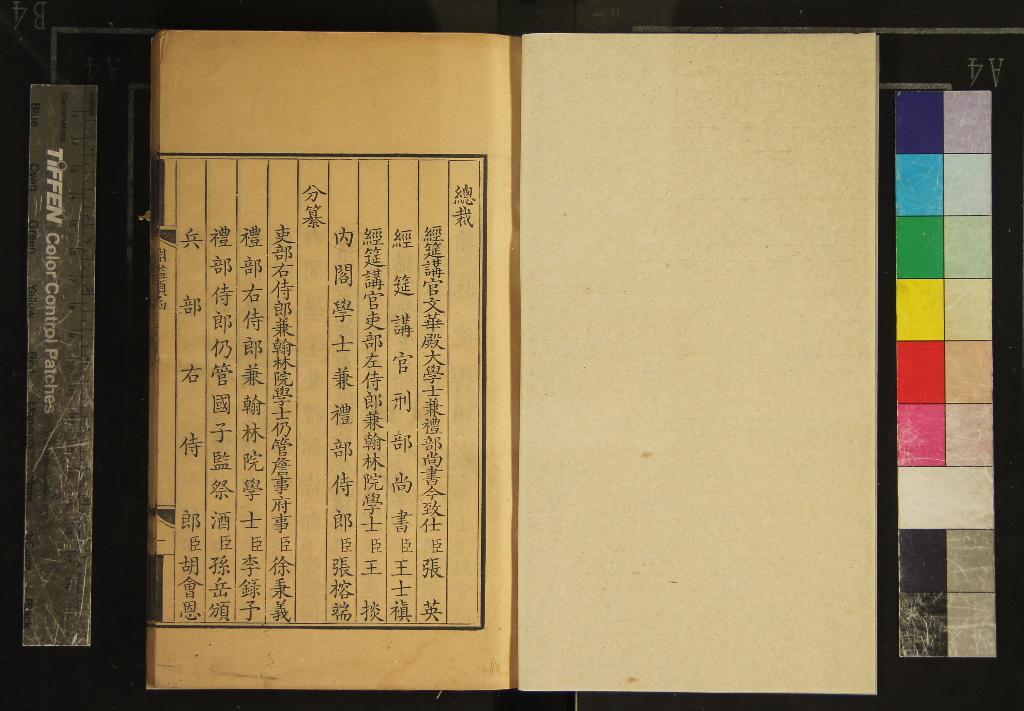 總裁
經筵講官文華殿大學士兼禮部尚書今致仕臣張英
經筵講官刑部尚書臣王士禛
經筵講官吏部左侍郎兼翰林院學士臣王掞
內閣學士兼禮部侍郎臣張榕端
分纂
吏部右侍郎兼翰林院學士仍管詹事府事臣徐秉義
禮部右侍郎兼翰林院學士臣李錄予
禮部侍郎仍管國子監祭酒臣孫岳頒
兵部右侍郎臣胡會恩
淵鑑類函
一
TIFFEN Color Control Patches
Centimetres
Blue
Cyan
Green
Yellow
Red
B4
A4
A4